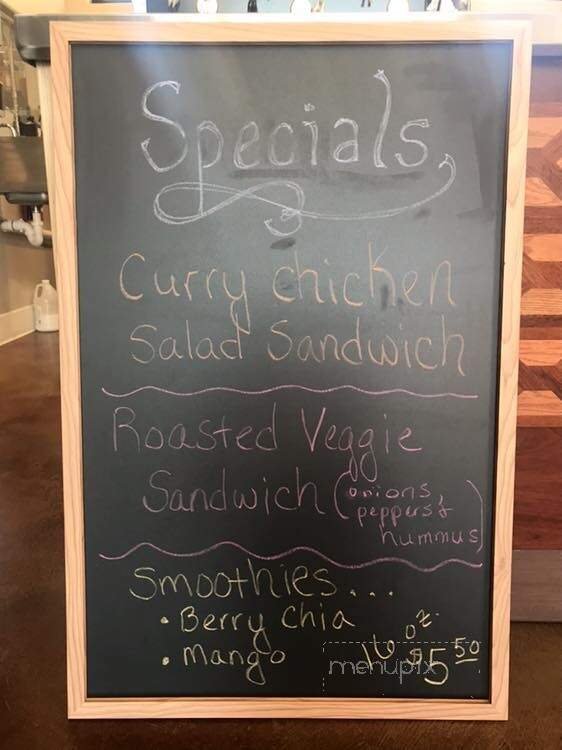 Specials
Curry chicken
Salad Sandwich
Roasted Veggie
Sandwich (onions,
peppers &
hummus)
Smoothies...
• Berry Chia
• Mango
16 oz.
$5.50
menupix